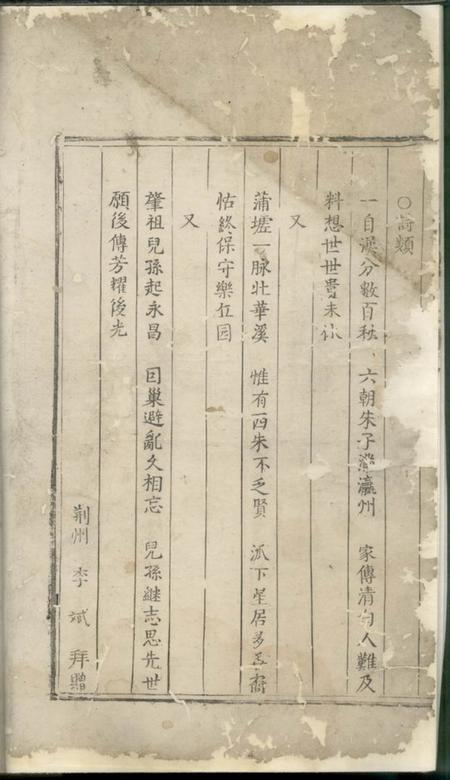 ○詩類
一自漢分數百秋　六朝朱子 瀛州　家傳清白人難及
料想世世貴未休
又
蒲墟一脉壯華溪　惟有四朱不乏賢　派下星居多
怙終保守樂丘园
又
肇祖兒孫起永昌　因巢避亂久相忘　兒孫継志思先世
願後傳芳耀後光
荆州　李斌　拜贈